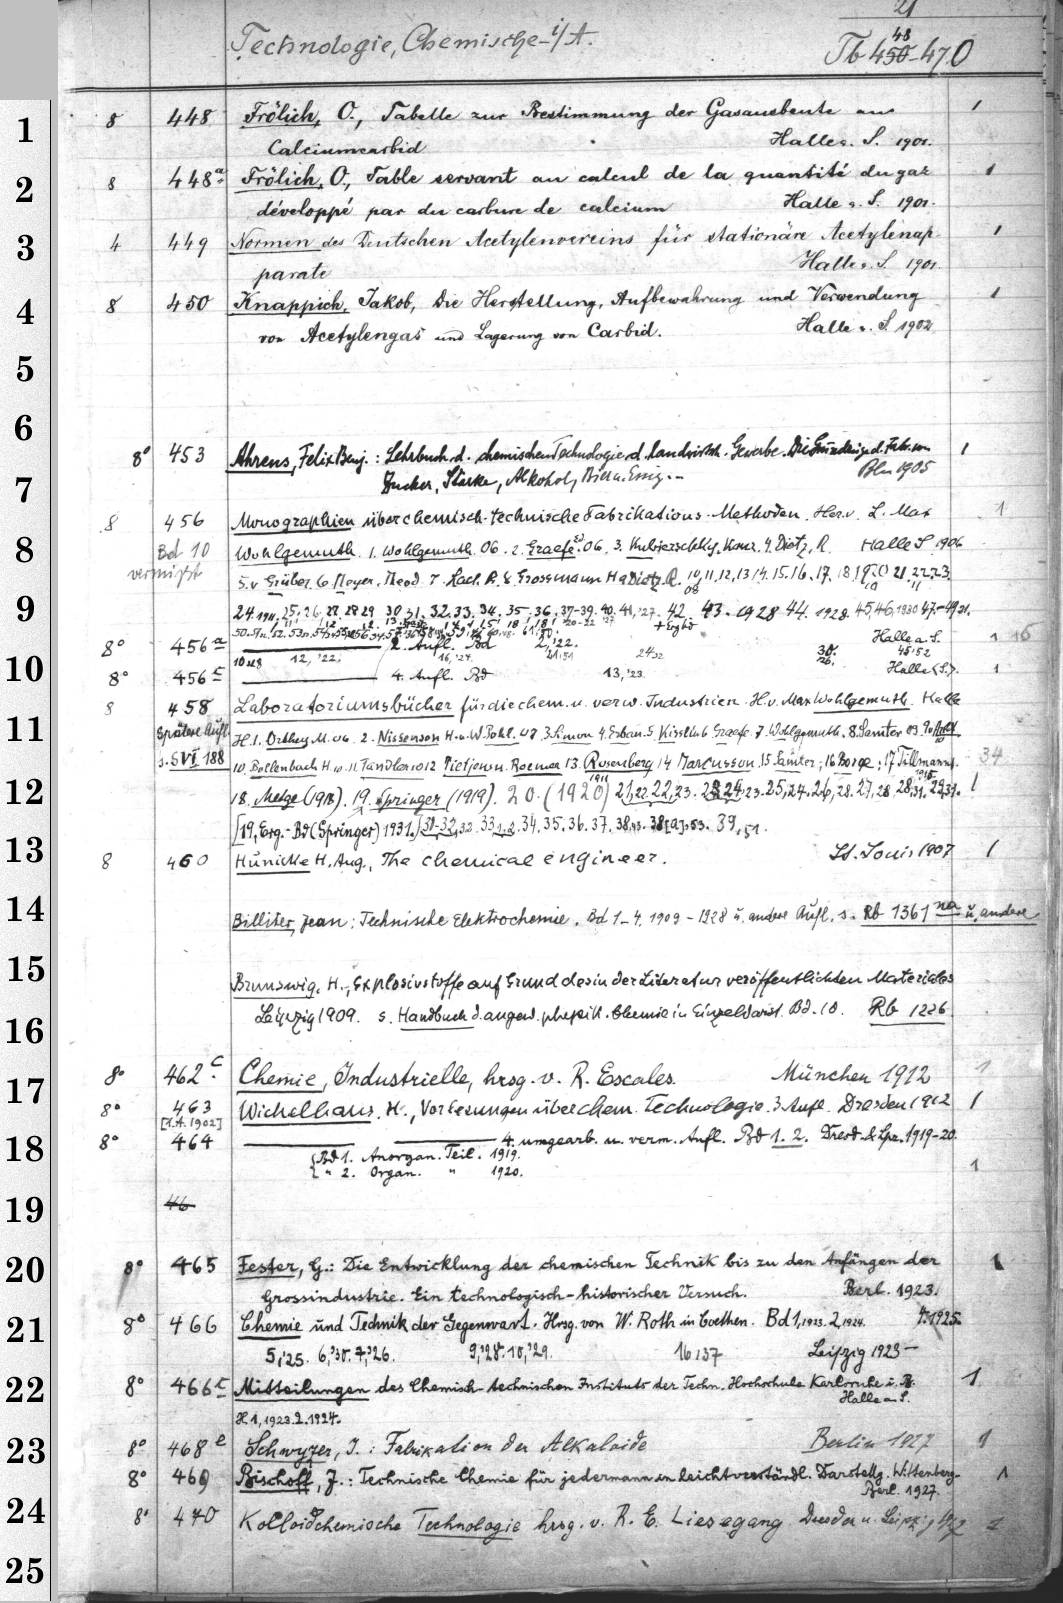 21
Technologie, Chemische i/A. Tb 450-470
48
1
8 448 Frölich, O., Tabelle zur Bestimmung der Gasausbeute aus 1
Calciumcarbid Halle a. S. 1901.
2
8 448a. Frölich, O., Table servant au calcul de la quantité du gaz 1
développé par du carbure de calcium Halle a. S. 1901.
3
4 449 Normen des Deutschen Acetylenvereins für stationäre Acetylenap- 1
parate Halle a. S. 1901.
4
8 450 Knappich, Jakob, Die Herstellung, Aufbewahrung und Verwendung 1
von Acetylengas und Lagerung von Carbid. Halle a. S. 1902
5
6
8° 453 Ahrens, Felix Benj.: Lehrbuch d. chemischen Technologie d. landwirtsch. Gewerbe. 1
Zucker, Stärke, Alkohol, Bier u. Essig. Bln 1905
7
8 456 Monographien über chemisch-technische Fabrikations-Methoden. Her. v. L. Max 1
8
Bd 10 Wohlgemuth. 1. Wohlgemuth. 06. 2. Graefe, Ed. 06. 3. Kubierschky, Konr. 4. Dietz, R. Halle S 1906
vermisst 5. v Grüber. 6 Meyer, Theod. 7. R. 8. Grossmann H 9 Dietz R. 10, 11, 12, 13, 14. 15. 16. 17. 18, 19, 20 21, 22, 23.
9
24. 25. 26. 27. 28 29 30 31. 32. 33. 34. 35. 36. 37-39. 40. 41, '27. 42. 43. 1928. 44. 1928. 45, 46, 1930 47.-49, 31.
8° 456a 2. Aufl. Bd 2, '22. Halle a. S. 1 16
12, '22. 16, '24.
10
8° 456c 4. Aufl. Bd 13, '23 Halle (S.) 1
8 458 Laboratoriumsbücher für die chem. u. verw. Industrien. H. v. Max Wohlgemuth. Halle
11
Spätere Aufl. H. 1. Orthey M. 06. 2. Nissenson H. u. W. Pohl. 07 3. Simon 4. Erban. 5. Kissling 6 Graefe. 7. Wohlgemuth. 8. Samter 09.
s. S VI 188 10. Bollenbach H. 10. 11. Tandler 1012 Pietjeuw. Roemer 13. Rosenberg 14 Marcusson. 15 Samter; 16 Berge; 17 Tillmanns. 34
12
18. Metge (1918). 19. Springer (1919). 20. (1920) 21, 22. 22, 23. 25, 24. 26, 28. 27, 28. 1
[19, Erg.-Bd (Springer) 1931.] 31-32, 32. 33. 34. 35. 36. 37. 38, 43. 38[a], 53. 39, 51.
13
8 460 Hünicke H. Aug., The chemical engineer. St. Louis 1907 1
14
Billiter, Jean: Technische Elektrochemie. Bd 1-4. 1909-1928 u. andere Aufl. s. Rb 1361 na u. andere
15
Brunswig, H., Explosivstoffe auf Grund des in der Literatur veröffentlichten Materiales
16
Leipzig 1909. s. Handbuch d. angew. physik. Chemie in Einzeldarst. Bd. 10. Rb 1226
17
8° 462c. Chemie, Industrielle, hrsg. v. R. Escales. München 1912 1
8° 463 Wichelhaus, H., Vorlesungen über chem. Technologie. 3. Aufl. Dresden 1912 1
[1. A. 1902]
18
8° 464 4. umgearb. u. verm. Aufl. Bd 1. 2. Dresd. & Lpz. 1919-20.
Bd 1. Anorgan. Teil. 1919.
" 2. Organ. " 1920. 1
19
46
20
8° 465 Fester, G.: Die Entwicklung der chemischen Technik bis zu den Anfängen der 1
Grossindustrie. Ein technologisch-historischer Versuch. Berl. 1923.
21
8° 466 Chemie und Technik der Gegenwart. Hrsg. von W. Roth in Coethen. Bd 1, 1923. 2, 1924. 4. 1925.
5, '25. 6, '30. 7, '26. 9, '28. 10, '29. 16, 37 Leipzig 1923 -
22
8° 466c Mitteilungen des Chemisch-technischen Instituts der Techn. Hochschule Karlsruhe i. B. 1
Halle a. S.
H. 1, 1923. 2. 1924.
23
8° 468e Schwyzer, J.: Fabrikation der Alkaloide Berlin 1927 1
8° 469 Bischoff, J.: Technische Chemie für jedermann in leichtverständl. Darstellg. Wittenberg- 1
Berl. 1927.
24
8° 470 Kolloidchemische Technologie hrsg. v. R. E. Liesegang Dresden u. Leipzig 1927 1
25